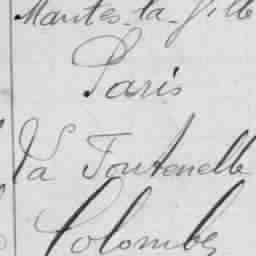 Mantes-la-Ville
Paris
La Fontenelle
Colombes